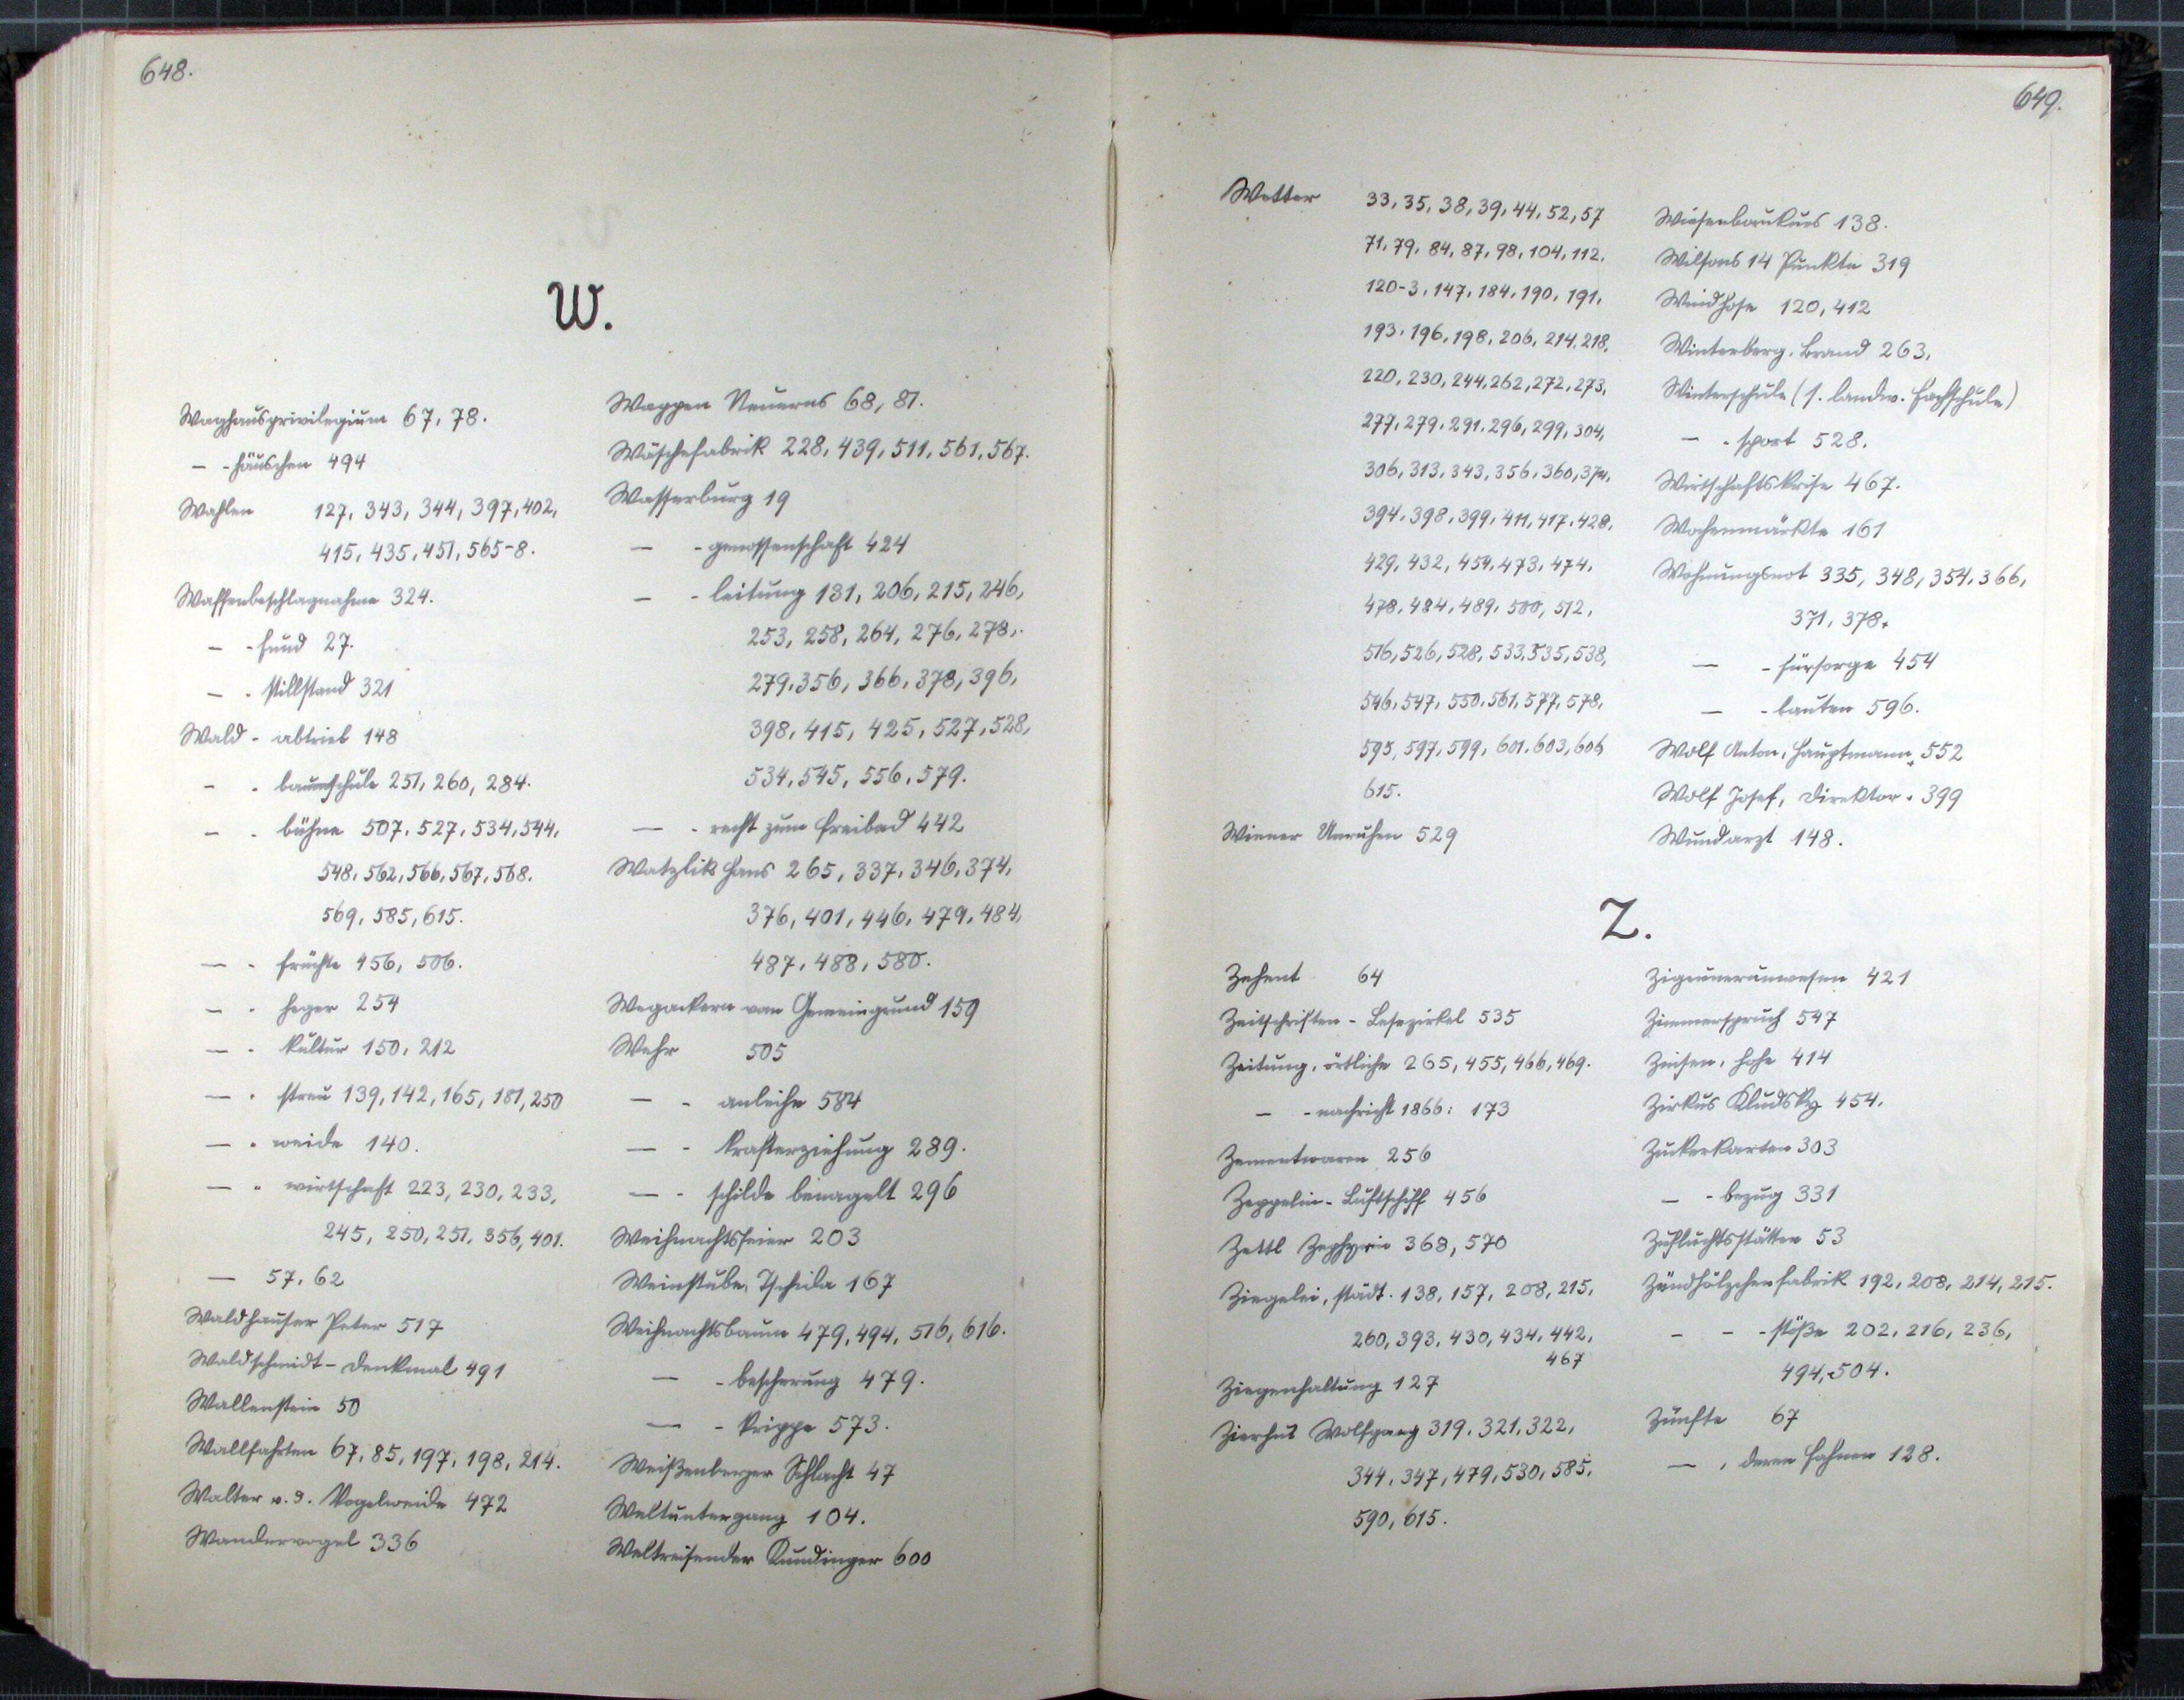 648.
W.
Waghausprivilegium 67, 78.
— - häuschen 494
Wahlen 127, 343, 344, 397, 402,
415, 435, 451, 565-8.
Waffenbeschlagnahme 324.
— - fund 27.
— - stillstand 321
Wald - abtrieb 148
- - baumschule 251, 260, 284.
— - bühne 507, 527, 534, 544,
548, 562, 566, 567, 568.
569, 585, 615.
— - früchte 456, 506.
— - heger 254
— - kultur 150, 212
— - streu 139, 142, 165, 181, 250
— - weide 140.
— - wirtschaft 223, 230, 233,
245, 250, 251, 356, 401.
— 57, 62
Waldhauser Peter 517
Waldschmidt - Denkmal 491
Wallenstein 50
Wallfahrten 67, 85, 197, 198, 214.
Walter v. d. Vogelweide 472
Wandervogel 336
Wappen Neuerns 68, 81.
Wäschefabrik 228, 439, 511, 561, 567.
Wasserburg 19
— - genossenschaft 424
— - leitung 131, 206, 215, 246,
253, 258, 264, 276, 278,
279, 356, 366, 378, 396,
398, 415, 425, 527, 528,
534, 545, 556, 579.
— - recht zum Freibad 442
Watzlik Hans 265, 337, 346, 374,
376, 401, 446, 479, 484,
487, 488, 580.
Wegackern von Gemeingrund 159
Wehr 505
— - anleihe 584
— - krafterziehung 289.
— - schilde benagelt 296
Weihnachtsfeier 203
Weinstube, Tscheila 167
Weihnachtsbaum 479, 494, 516, 616.
— - bescherung 479.
— - krippe 573.
Weißenberger Schlacht 47
Weltuntergang 104.
Weltreisender Kundinger 600
649.
Wetter 33, 35, 38, 39, 44, 52, 57
71, 79, 84, 87, 98, 104, 112.
120-3, 147, 184, 190, 191,
193, 196, 198, 206, 214, 218,
220, 230, 244, 262, 272, 273,
277, 279, 291, 296, 299, 304,
306, 313, 343, 356, 360, 374,
394, 398, 399, 411, 417, 428,
429, 432, 454, 473, 474,
478, 484, 489, 500, 512,
516, 526, 528, 533, 535, 538,
546, 547, 550, 561, 577, 578,
595, 597, 599, 601, 603, 606
615.
Wiener Unruhen 529
Wiesenbaukurs 138.
Wilsons 14 Punkte 319
Windhose 120, 412
Winterberg, Brand 263,
Winterschule (s. landw. Fachschule)
— - sport 528.
Wirtschaftskrise 467.
Wochenmärkte 161
Wohnungsnot 335, 348, 354, 366,
371, 378,
— - fürsorge 454
— - bauten 596.
Wolf Anton, Hauptmann, 552
Wolf Josef, Direktor, 399
Wundarzt 148.
Z.
Zehent 64
Zeitschriften - Lesezirkel 535
Zeitung, örtliche 265, 455, 466, 469.
— - nachricht 1866: 173
Zementwaren 256
Zeppelin - Luftschiff 456
Zettl Zephyrin 368, 570
Ziegelei, städt. 138, 157, 208, 215,
260, 393, 430, 434, 442,
467
Ziegenhaltung 127
Zierhut Wolfgang 319, 321, 322,
344, 347, 479, 530, 585,
590, 615.
Zigeunerunwesen 421
Zimmerspruch 547
Zinsen, hohe 414
Zirkus Kludsky 454.
Zuckerkarten 303
— - bezug 331
Zufluchtsstätten 53
Zündhölzchenfabrik 192, 208, 214, 215.
- - - stöße 202, 216, 236,
494, 504.
Zünfte 67
— , deren Fahnen 128.